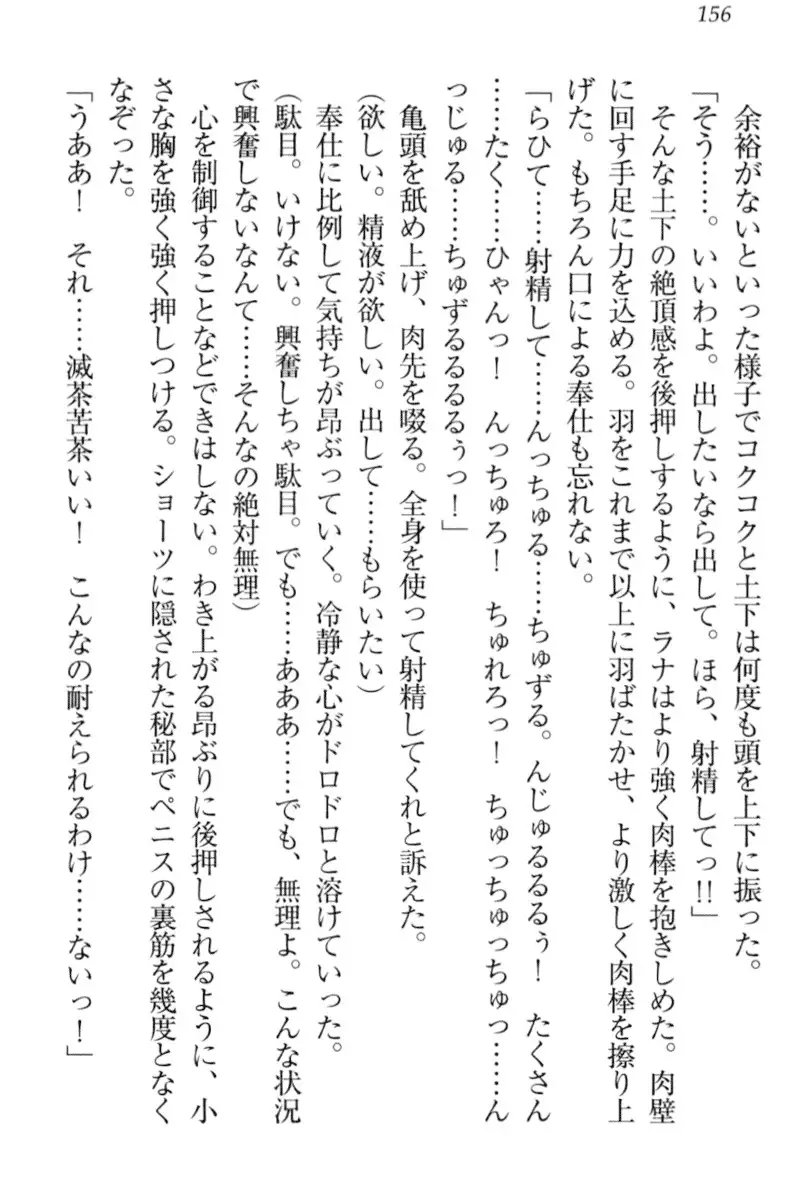 156
余裕がないといった様子でコクコクと土下は何度も頭を上下に振った。
「そう……。いいわよ。出したいなら出して。ほら、射精してっ!!」
そんな土下の絶頂感を後押しするように、ラナはより強く肉棒を抱きしめた。肉壁
に回す手足に力を込める。羽をこれまで以上に羽ばたかせ、より激しく肉棒を擦り上
げた。もちろん口による奉仕も忘れない。
「らひて……射精して……んっちゅる……ちゅずる。んじゅるるるぅ！　たくさん
……たく……ひゃんっ！　んっちゅろ！　ちゅれろっ！　ちゅっちゅっちゅっ……ん
っじゅる……ちゅずるるるるぅっ！」
亀頭を舐め上げ、肉先を啜る。全身を使って射精してくれと訴えた。
（欲しい。精液が欲しい。出して……もらいたい）
奉仕に比例して気持ちが昂ぶっていく。冷静な心がドロドロと溶けていった。
（駄目。いけない。興奮しちゃ駄目。でも……あああ……でも、無理よ。こんな状況
で興奮しないなんて……そんなの絶対無理）
心を制御することなどできはしない。わき上がる昂ぶりに後押しされるように、小
さな胸を強く強く押しつける。ショーツに隠された秘部でペニスの裏筋を幾度となく
なぞった。
「うああ！　それ……滅茶苦茶いい！　こんなの耐えられるわけ……ないっ！」